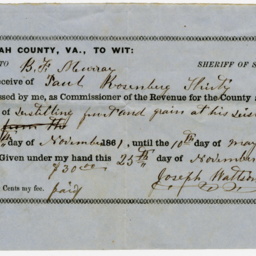 AH COUNTY, VA., TO WIT:
TO B. F. Murray SHERIFF OF S
eceive of Paul Rosenberg Thirty
ssed by me, as Commissioner of the Revenue for the County
of Distilling fruit and grain at his
from the
day of November 1861, until the 10th day of may
Given under my hand this 25th day of November
$30.00 Joseph Watson
Cents my fee. paid